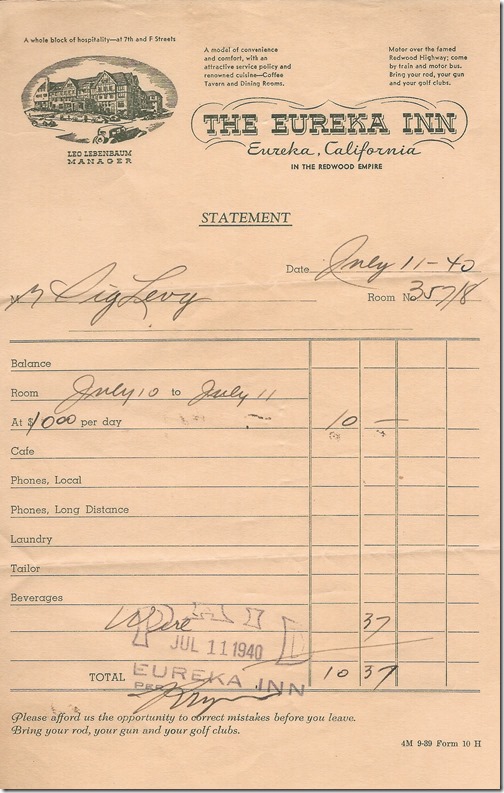 A whole block of hospitality—at 7th and F Streets
A model of convenience
and comfort, with an
attractive service policy and
renowned cuisine—Coffee
Tavern and Dining Rooms.
Motor over the famed
Redwood Highway; come
by train and motor bus.
Bring your rod, your gun
and your golf clubs.
LEO LEBENBAUM
MANAGER
THE EUREKA INN
Eureka, California
IN THE REDWOOD EMPIRE
STATEMENT
Date July 11-40
M Sig Levy Room No 357/8
Balance
Room July 10 to July 11
At $10 00 per day 10 —
Cafe
Phones, Local
Phones, Long Distance
Laundry
Tailor
Beverages
Wire 37
PAID
JUL 11 1940
TOTAL 10 37
EUREKA INN
PER
Please afford us the opportunity to correct mistakes before you leave.
Bring your rod, your gun and your golf clubs.
4M 9-39 Form 10 H